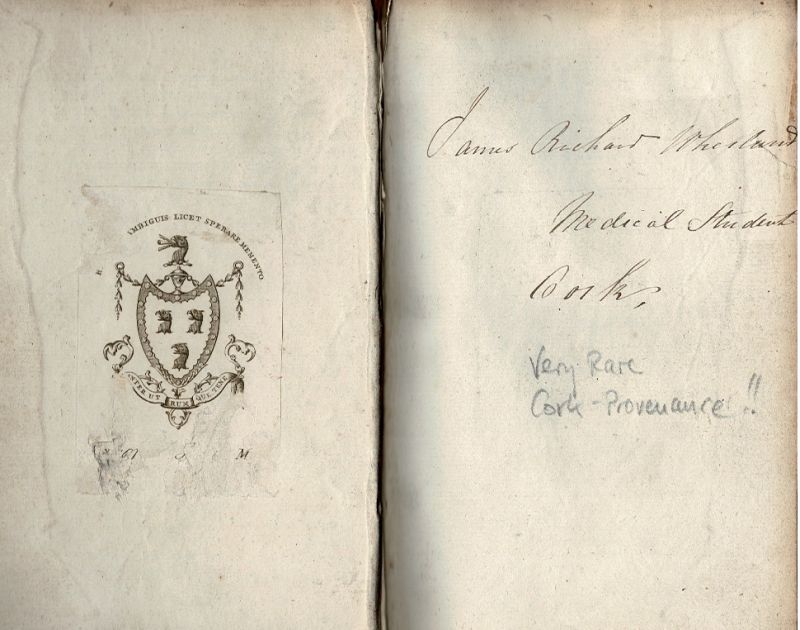 AMBIGUIS LICET SPERARE MEMENTO
INTER UTRUMQUE TENE
M
James Richard Wheeland
Medical Student
Cork,
Very Rare
Cork - Provenance !!